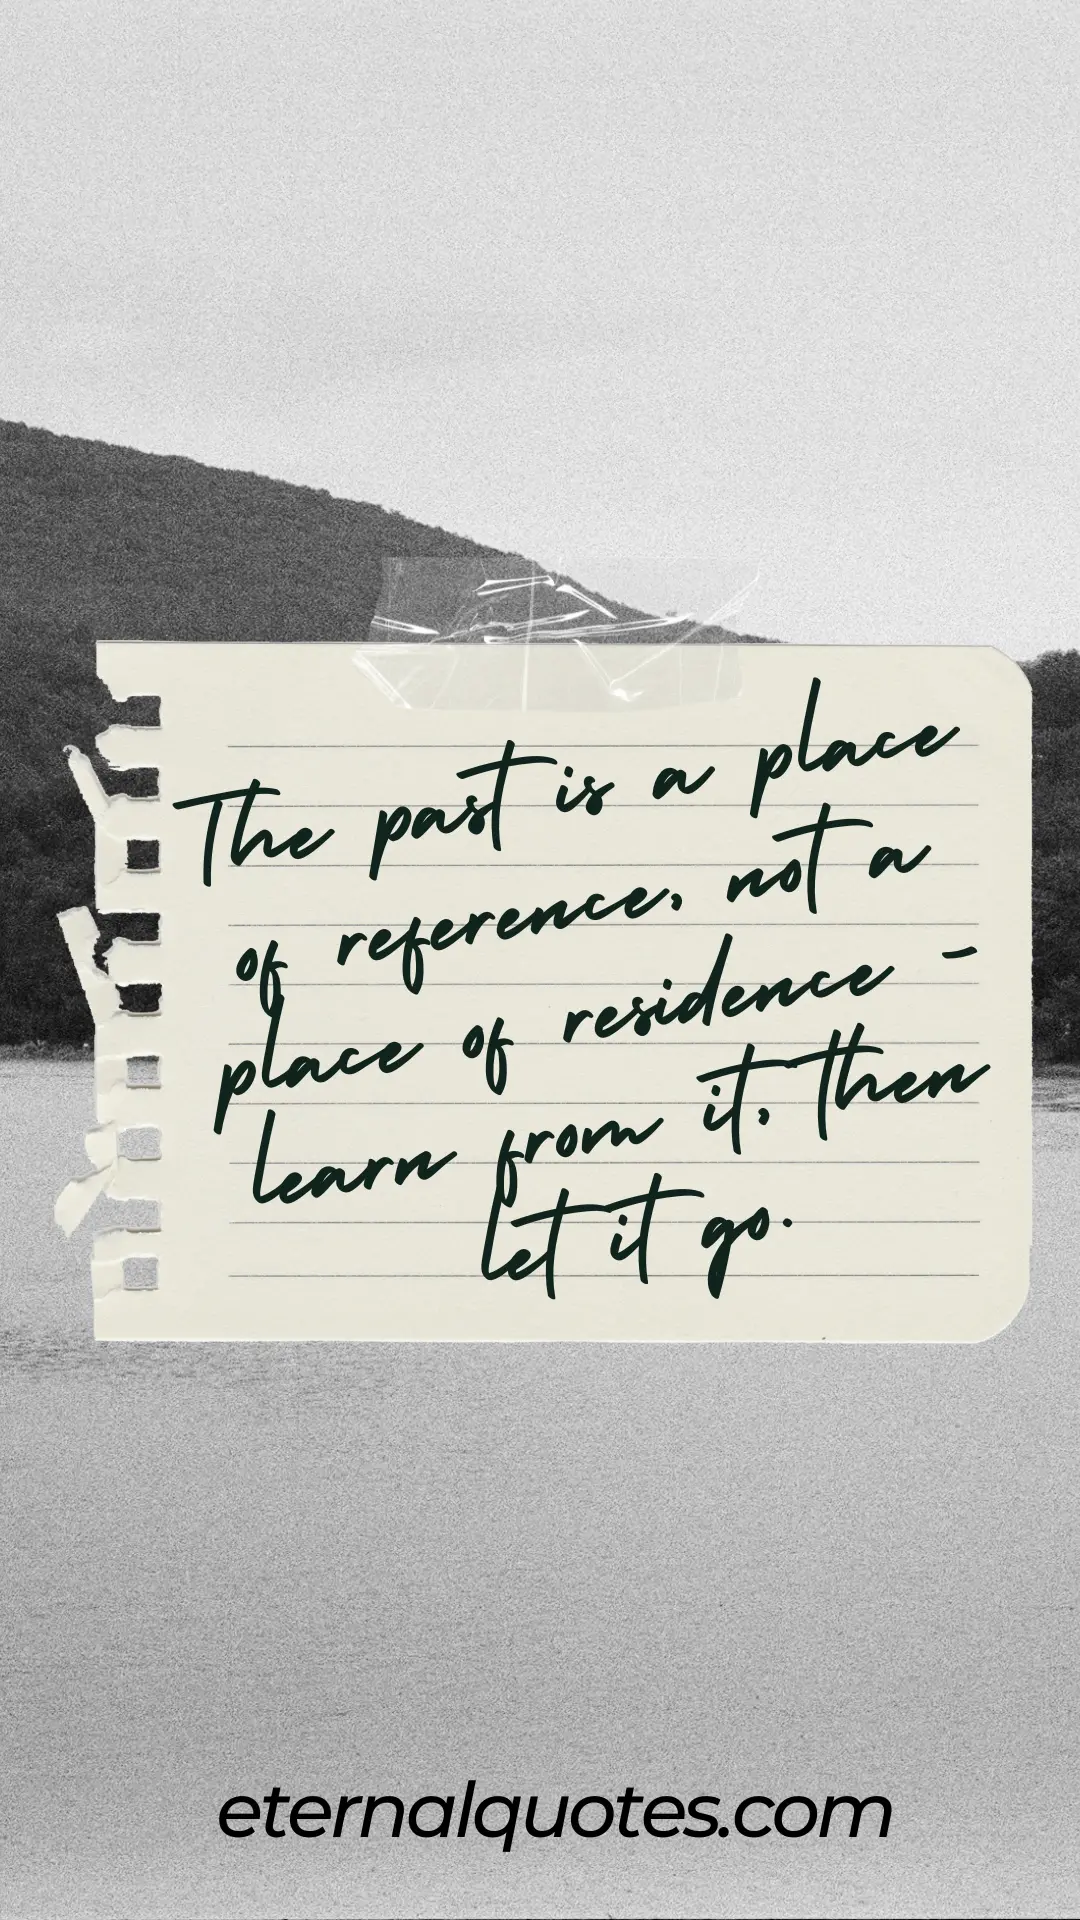 The past is a place
of reference, not a
place of residence -
learn from it, then
let it go.
eternalquotes.com